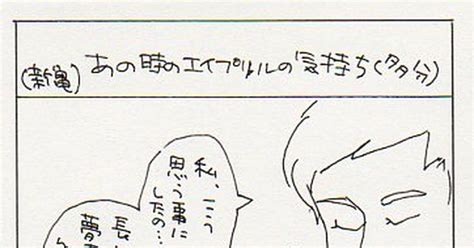 (新亀) あの時のエイプリルの気持ち(多分)
私、こう
思う事に
したの…
長
夢